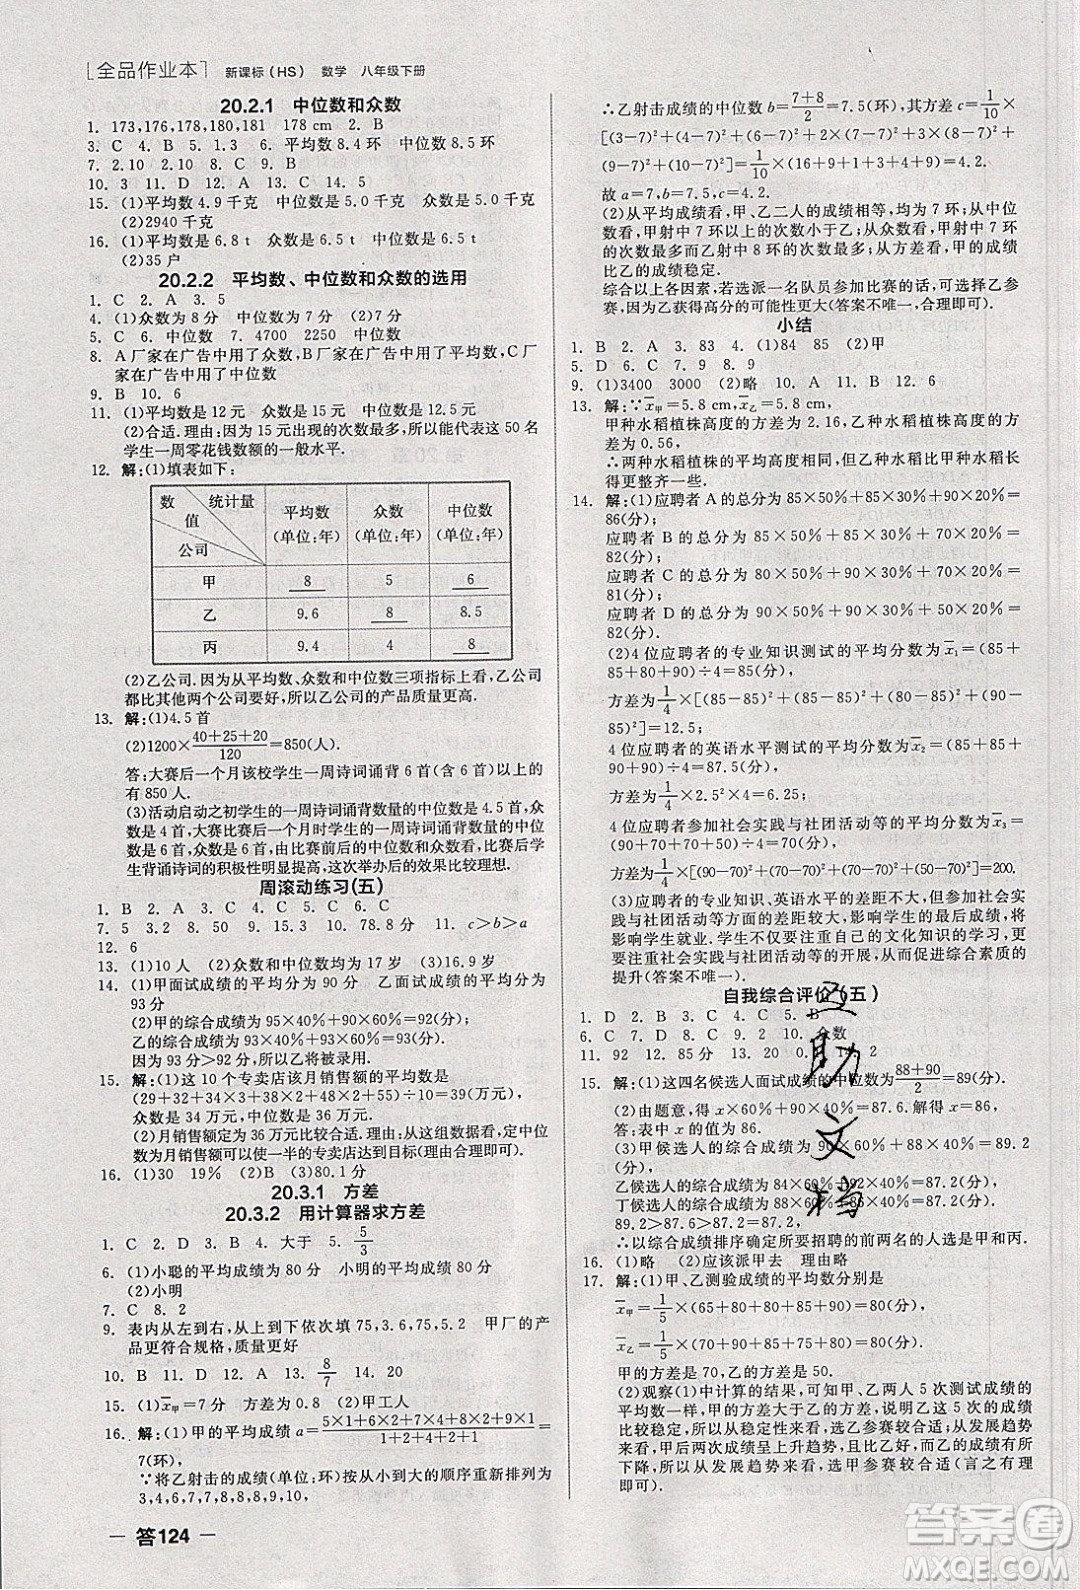 [全品作业本] 新课标(HS) 数学 八年级下册
20.2.1 中位数和众数
1. 173,176,178,180,181 178 cm 2. B
3. C 4. B 5. 1.3 6. 平均数 8.4 环 中位数 8.5 环
7. 2.10 2.10 8. C 9. B
10. 3 11. D 12. A 13. C 14. 5
15. (1)平均数 4.9 千克 中位数 5.0 千克 众数是 5.0 千克
(2)2940 千克
16. (1)平均数是 6.8 t 众数是 6.5 t 中位数是 6.5 t
(2)35 户
20.2.2 平均数、中位数和众数的选用
1. C 2. A 3. 5
4. (1)众数为 8 分 中位数 9 分 (2)7 分
5. C 6. 中位数 7. 4700 2250 中位数
8. A 厂家在广告中用了众数,B 厂家在广告中用了平均数,C 厂
家在广告中用了中位数
9. B 10. 6
11. (1)平均数是 12 元 众数是 15 元 中位数是 12.5 元
(2)合适.理由:因为 15 元出现的次数最多,所以能代表这 50 名
学生一周零花钱数额的一般水平.
12. 解:(1)填表如下:
数值 统计量 公司 平均数(单位:年) 众数(单位:年) 中位数(单位:年)
甲 8 5 6
乙 9.6 8 8.5
丙 9.4 4 8
(2)乙公司.因为从平均数、众数和中位数三项指标上看,乙公司
都比其他两个公司要好,所以乙公司的产品质量更高.
13. 解:(1)4.5 首
(2)1200×(40+25+20)/120=850(人).
答:大赛后一个月该校学生一周诗词诵背 6 首(含 6 首)以上的
有 850 人.
(3)活动启动之初学生的一周诗词诵背数量的中位数是 4.5 首,众
数是 4 首,大赛比赛后一个月时学生一周诗词诵背数量的中位数
是 6 首,众数是 6 首,由比赛前后的中位数和众数看,比赛后学
生背诵诗词的积极性明显提高,这次举办后的效果比较理想.
周滚动练习(五)
1. B 2. A 3. C 4. C 5. B 6. C
7. 5 3.2 8. 50 9. 15.3 10. 78.8 分 11. c>b>a
12. 6
13. (1)10 人 (2)众数和中位数均为 17 岁 (3)16.9 岁
14. (1)甲面试成绩的平均分为 90 分 乙面试成绩的平均分为
93 分
(2)甲的综合成绩为 95×40%+90×60%=92(分),
乙的综合成绩为 93×40%+93×60%=93(分).
因为 93 分>92 分,所以乙将被录用.
15. 解:(1)这 10 个专卖店该月销售额的平均数是
(29+32+34×3+36+38×2+48+55)÷10=37.8(万元).
众数是 34 万元,中位数是 36 万元.
(2)月销售额定为 36 万元比较合适.理由:因为这组数据的中位数
为 36,所以可以使一半的专卖店达到目标(理由合理即可).
16. (1)30 19% (2)B (3)80.1 分
20.3.1 方差
20.3.2 用计算器求方差
1. C 2. D 3. B 4. 大于 5. 5/3
6. (1)小聪的平均成绩为 80 分 小明的平均成绩为 80 分
(2)小明
7. C 8. 2
9. 表内从左到右,从上到下依次填 75,3.6,75,2 甲厂的产
品更符合规格,质量更好.
10. B 11. D 12. A 13. 8/7 14. 20
15. (1)x̄甲=7 分 方差是 3 分² (2)甲工人
16. 解:(1)甲的平均成绩 a=(5×1+6×2+7×4+8×2+9×1)/(1+2+4+2+1)=
7(环),
∵将乙射击的成绩(单位:环)从小到大的顺序重新排列为
3,4,6,7,7,8,8,8,9,10,
∴乙射击成绩的中位数 b=(7+8)/2=7.5(环),其方差 c=1/10×
[(3-7)²+(4-7)²+(6-7)²+2×(7-7)²+3×(8-7)²+
(9-7)²+(10-7)²]=1/10×(16+9+1+3+4+9)=4.2.
故 a=7,b=7.5,c=4.2.
(2)从平均成绩看,甲、乙二人的成绩相等,均为 7 环;从中位
数看,甲射中 7 环以上的次数小于乙;从众数看,甲射中 7 环
的次数最多而乙射中 8 环的次数最多;从方差看,甲的成绩
比乙的成绩稳定.
综合以上各因素,若选派一名队员参加比赛的话,可选择乙参
赛,因为乙获得高分的可能性更大(答案不唯一,合理即可).
小结
1. B 2. A 3. 83 4. (1)84 85 (2)甲
5. D 6. C 7. 9 8. 9
9. (1)3400 3000 (2)略 10. A 11. C 12. 6
13. 解:∵x̄甲=5.8 cm,x̄乙=5.8 cm,
甲种水稻植株高度的方差为 2.16,乙种水稻植株高度的方差
为 0.56,
∴两种水稻植株的平均高度相同,但乙种水稻的植株比甲种长
得更整齐一些.
14. 解:(1)应聘者 A 的总分为 85×50%+85×30%+90×20%=
86(分);
应聘者 B 的总分为 85×50%+85×30%+70×20%=
82(分);
应聘者 C 的总分为 80×50%+90×30%+70×20%=
81(分);
应聘者 D 的总分为 90×50%+90×30%+50×20%=
82(分).
(2)4 位应聘者的专业知识测试的平均分数 x̄₁=
(85+85+80+90)÷4=85(分),
方差为 1/4×[(85-85)²+(85-85)²+(80-85)²+(90-
85)²]=12.5;
4 位应聘者的英语水平测试的平均分数 x̄₂=(85+85+
90+90)÷4=87.5(分),
方差为 1/4×2.5²×4=6.25;
4 位应聘者参加社会实践与社团活动等的平均分数为 x̄₃=
(90+70+70+50)÷4=70(分),
方差为 1/4[(90-70)²+(70-70)²+(70-70)²+(50-70)²]=200.
(3)应聘者的专业知识、英语水平的差距不大,但参加社会实
践与社团活动等的差距较大,影响学生的最后成绩,从而
影响学生就业.学生不仅要注重自己的文化知识的学习,更
要注重社会实践与社团活动等的开展,从而促进综合素质的
提升(答案不唯一).
自我综合评价(五)
1. D 2. B 3. C 4. C 5. B
6. C 7. D 8. B 9. 2 10. 众数
11. 92 12. 85 分 13. 20 14. 2
15. 解:(1)这四名候选人面试成绩的中位数为(88+90)/2=89(分);
(2)由题意,得 x×60%+90×40%=87.6.解得 x=86,
答:表中 x 的值为 86.
(3)甲候选人的综合成绩为 90×60%+88×40%=89.2
(分),
乙候选人的综合成绩为 84×60%+92×40%=87.2(分),
丁候选人的综合成绩为 88×60%+86×40%=87.2(分),
89.2>87.6>87.2=87.2,
∴以综合成绩排序确定所要招聘的前两名的人选是甲和丙.
16. (1)略 (2)应该派甲去 理由略
17. 解:(1)甲、乙测验成绩的平均数分别是
x̄甲=1/5×(65+80+80+85+90)=80(分),
x̄乙=1/5×(70+90+85+75+80)=80(分).
甲的方差是 70,乙的方差是 50.
(2)观察(1)中计算的结果,可知甲、乙两人 5 次测试成绩的
平均数一样,但甲的方差大于乙的方差,所以从成绩的稳定
性来看,选乙参赛较合适;但是从发展趋势来看,乙的成绩
发展趋势不如甲呈上升趋势,所以从发展趋势来看,选甲参赛较合适(言之有理
即可).
— 答124 —
互助文档
答案圈
MXQE.COM